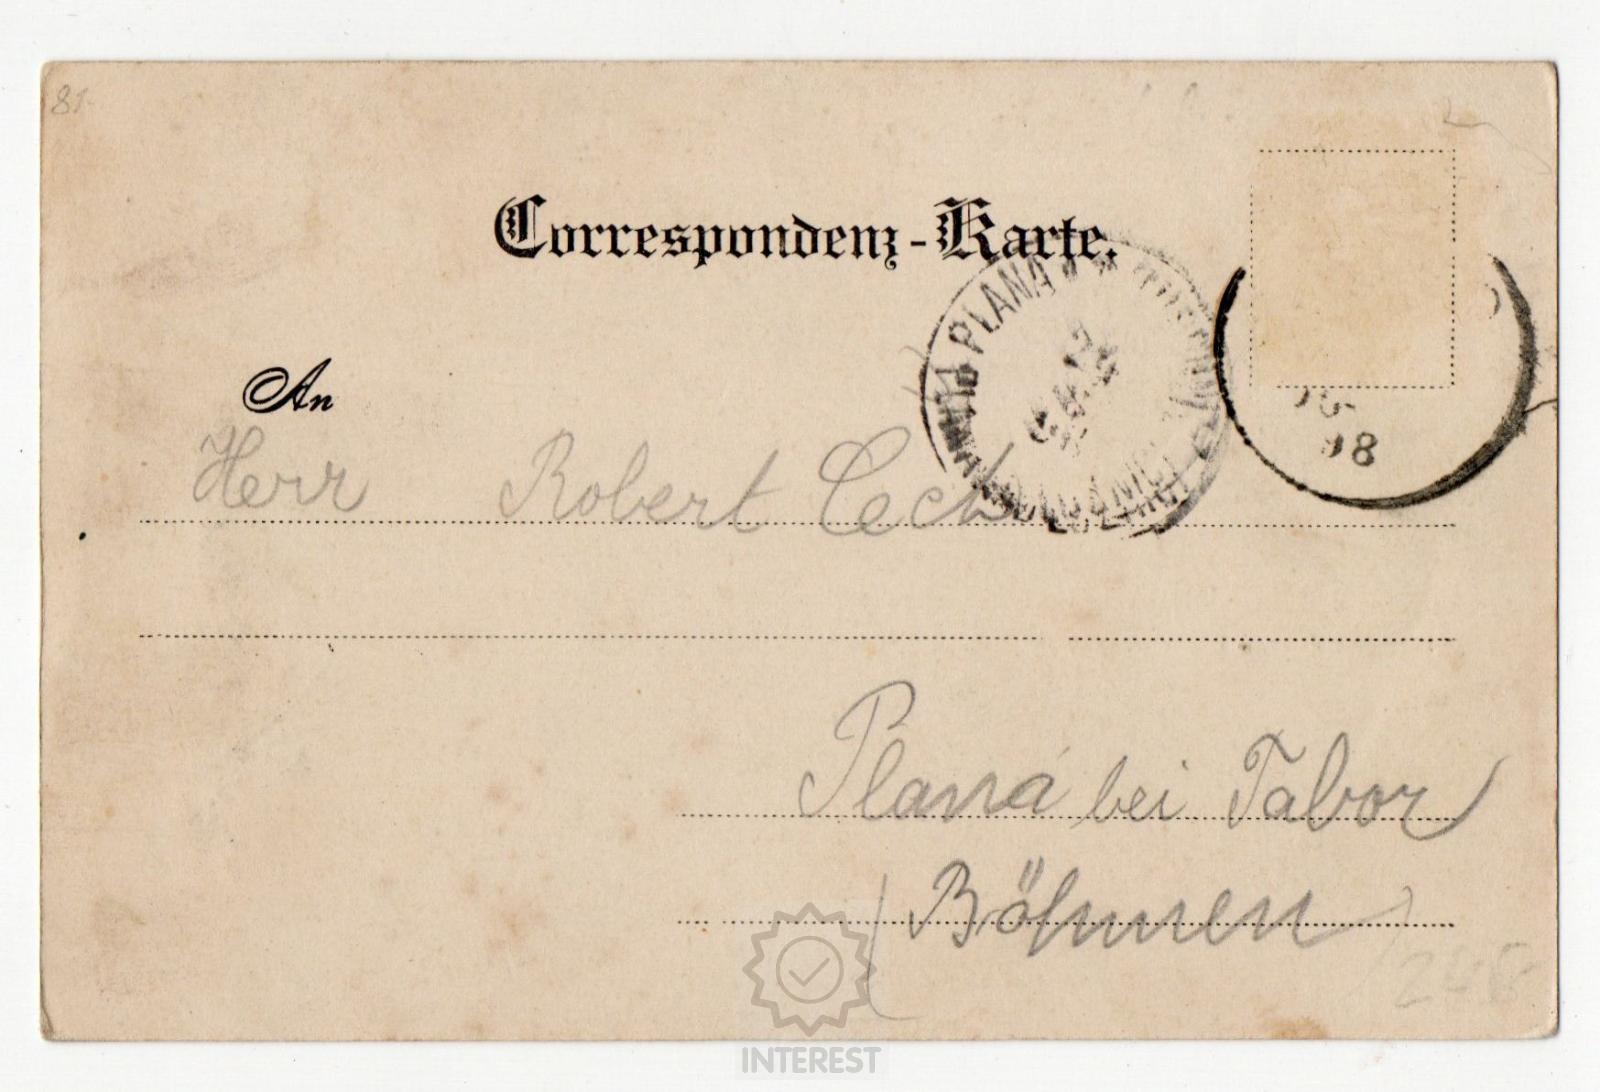 81
Correspondenz-Karte.
PLANA
98
An
Herr Robert Cech
Planá bei Tabor
(Böhmen)
INTEREST